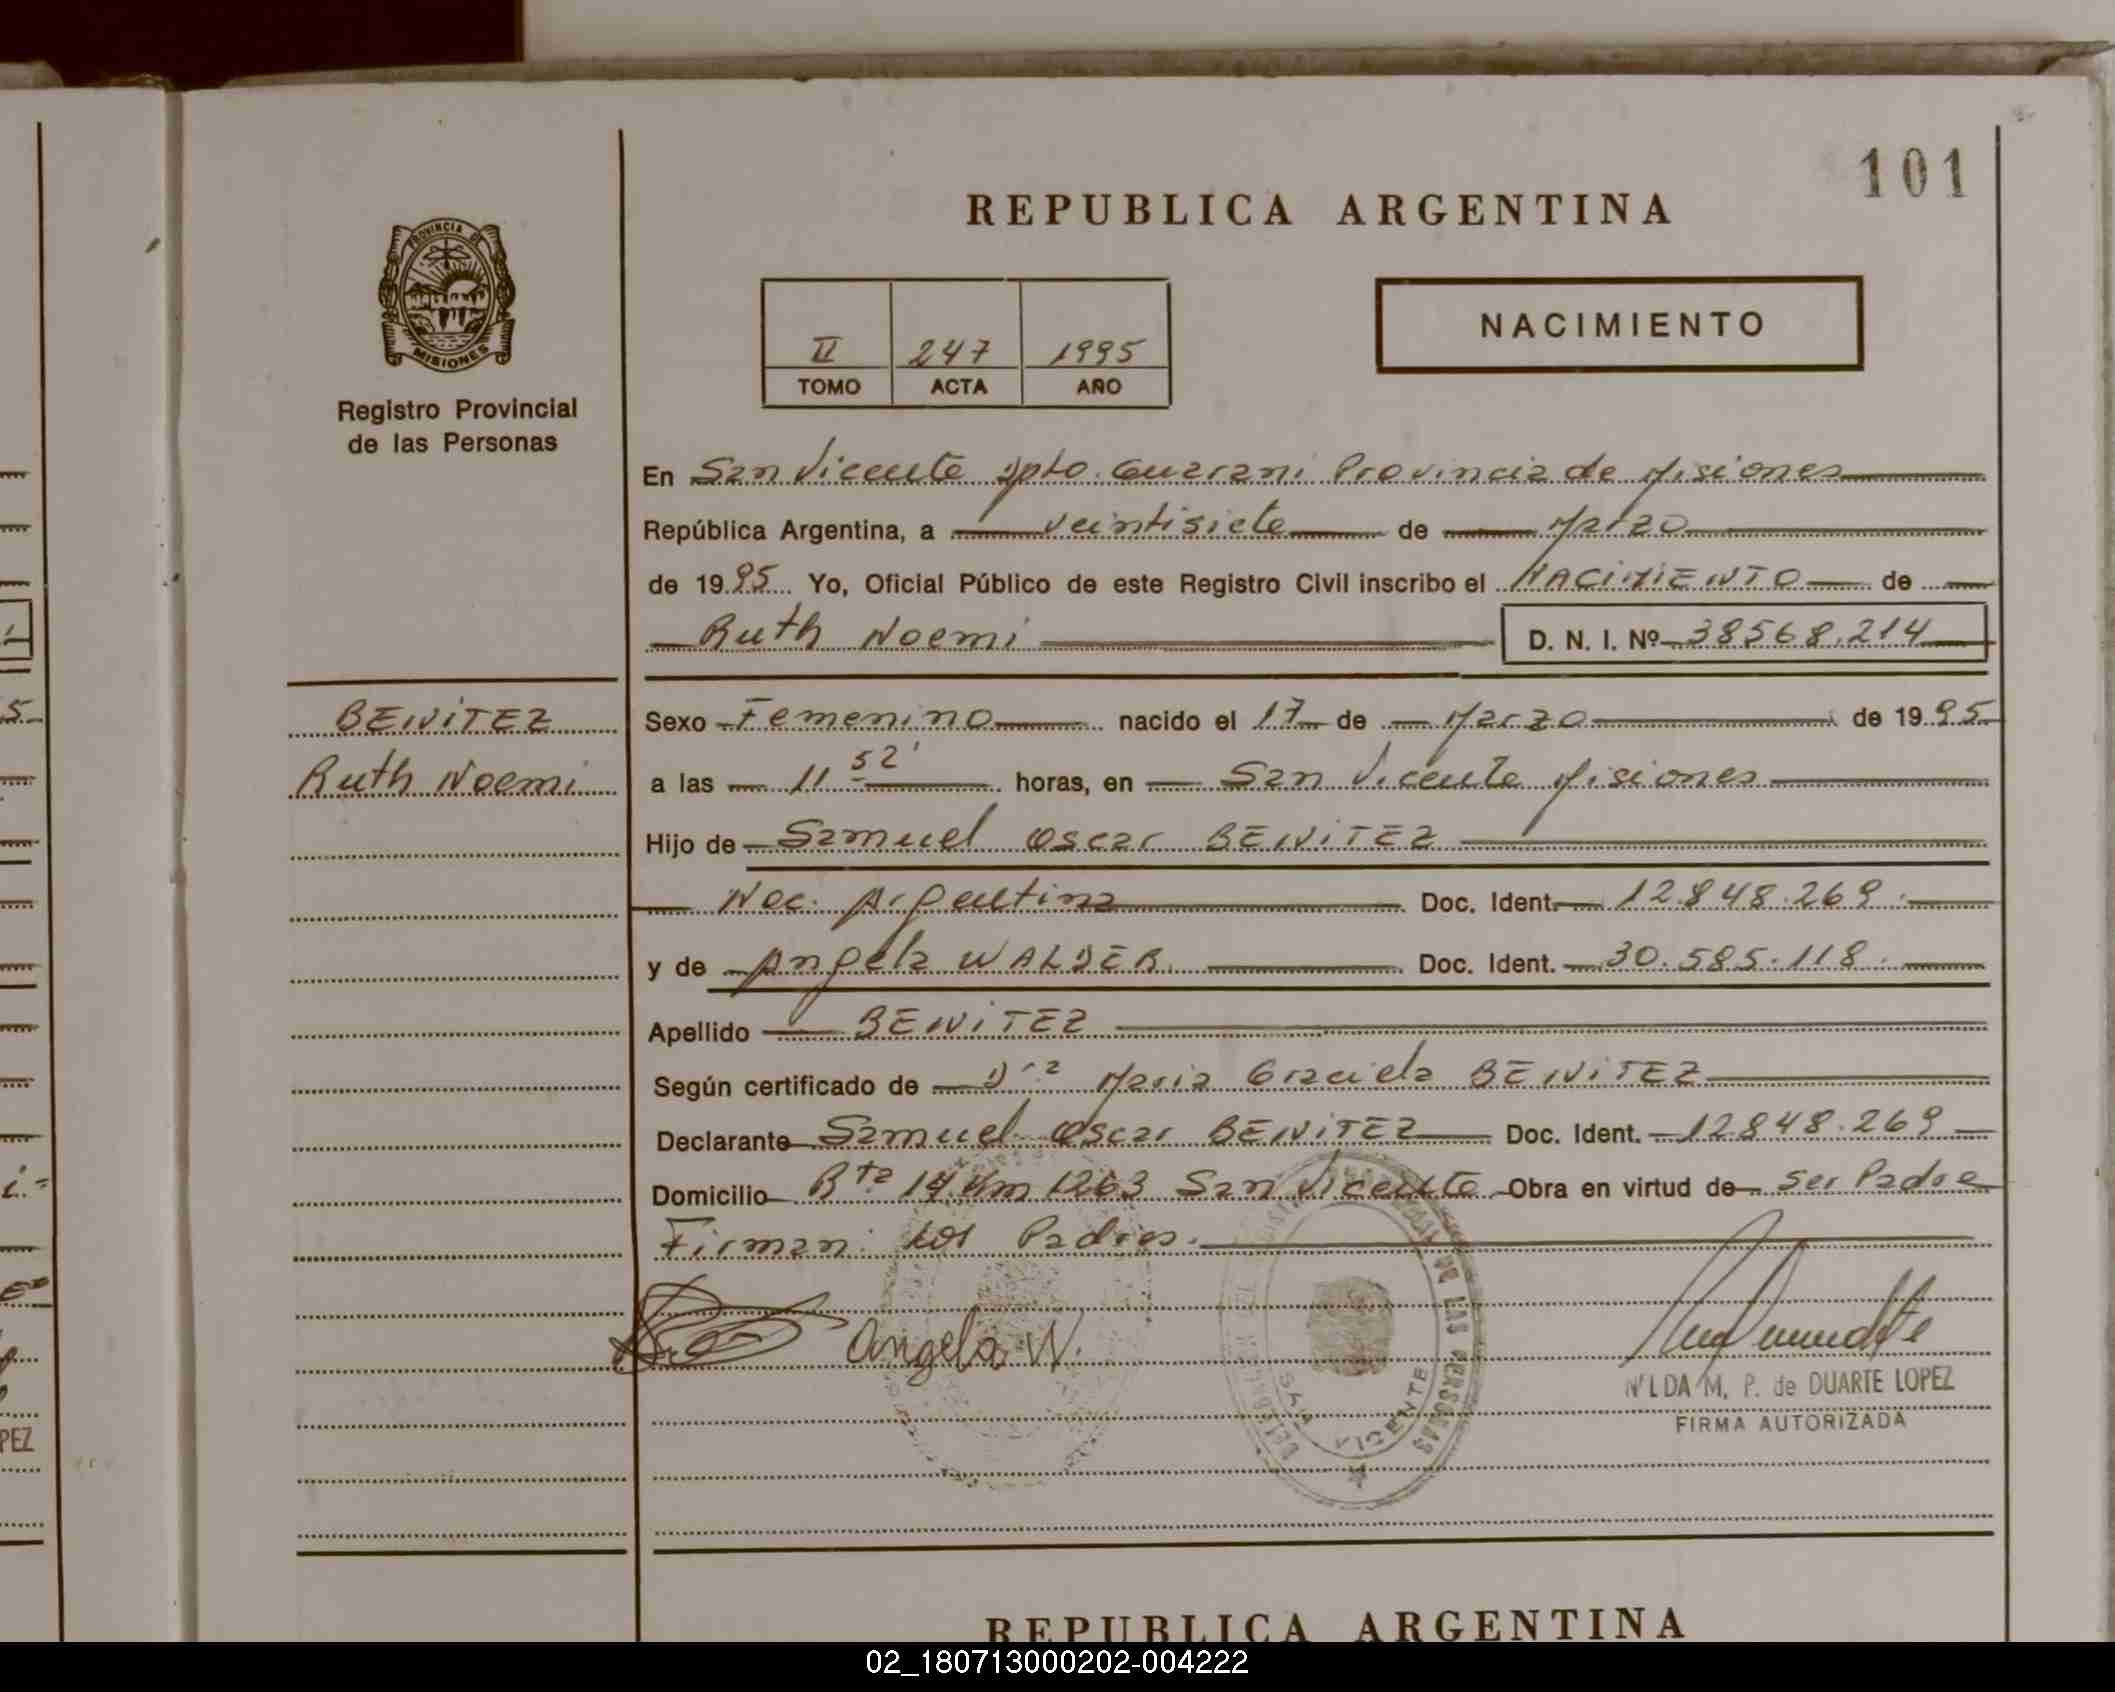 101
REPUBLICA ARGENTINA
PROVINCIA DE
MISIONES
Registro Provincial
de las Personas
II 247 1995
TOMO ACTA AÑO
NACIMIENTO
En San Vicente Dpto. Guarani Provincia de Misiones
República Argentina, a veintisiete de Marzo
de 1995 Yo, Oficial Público de este Registro Civil inscribo el NACIMIENTO de
Ruth Noemi D. N. I. Nº 38568.214
BENITEZ
Ruth Noemi
Sexo Femenino nacido el 17 de Marzo de 1995
a las 11 52' horas, en San Vicente Misiones
Hijo de Samuel Oscar BENITEZ
Nac. Argentina Doc. Ident. 12.848.269
y de Angela WALDER Doc. Ident. 30.585.118
Apellido BENITEZ
Según certificado de Dra Maria Graciela BENITEZ
Declarante Samuel Oscar BENITEZ Doc. Ident. 12.848.269
Domicilio Rta 14 Km 1263 San Vicente Obra en virtud de ser Padre
Firman: los Padres.
Angela W.
DE LAS PERSONAS
SAN VICENTE
NILDA M. P. de DUARTE LOPEZ
FIRMA AUTORIZADA
PEZ
REPUBLICA ARGENTINA
02_180713000202-004222